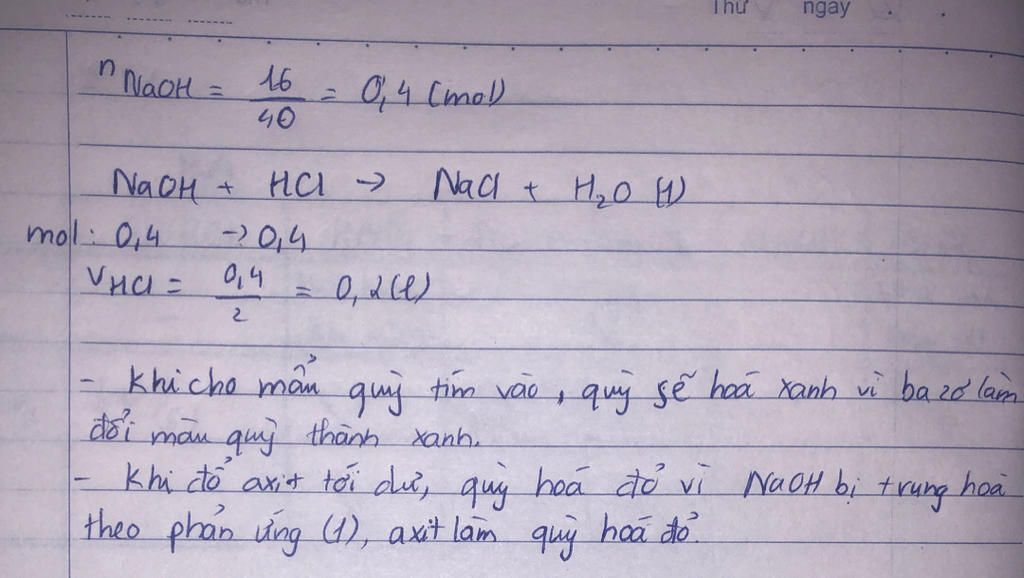 Thứ ngày
n NaOH = 16/40 = 0,4 (mol)
NaOH + HCl → NaCl + H₂O (1)
mol: 0,4 → 0,4
V HCl = 0,4/2 = 0,2 (l)
- Khi cho mẩu quỳ tím vào, quỳ sẽ hoá xanh vì bazơ làm
đổi màu quỳ thành xanh.
- Khi đổ axit tới dư, quỳ hoá đỏ vì NaOH bị trung hoà
theo phản ứng (1), axit làm quỳ hoá đỏ.